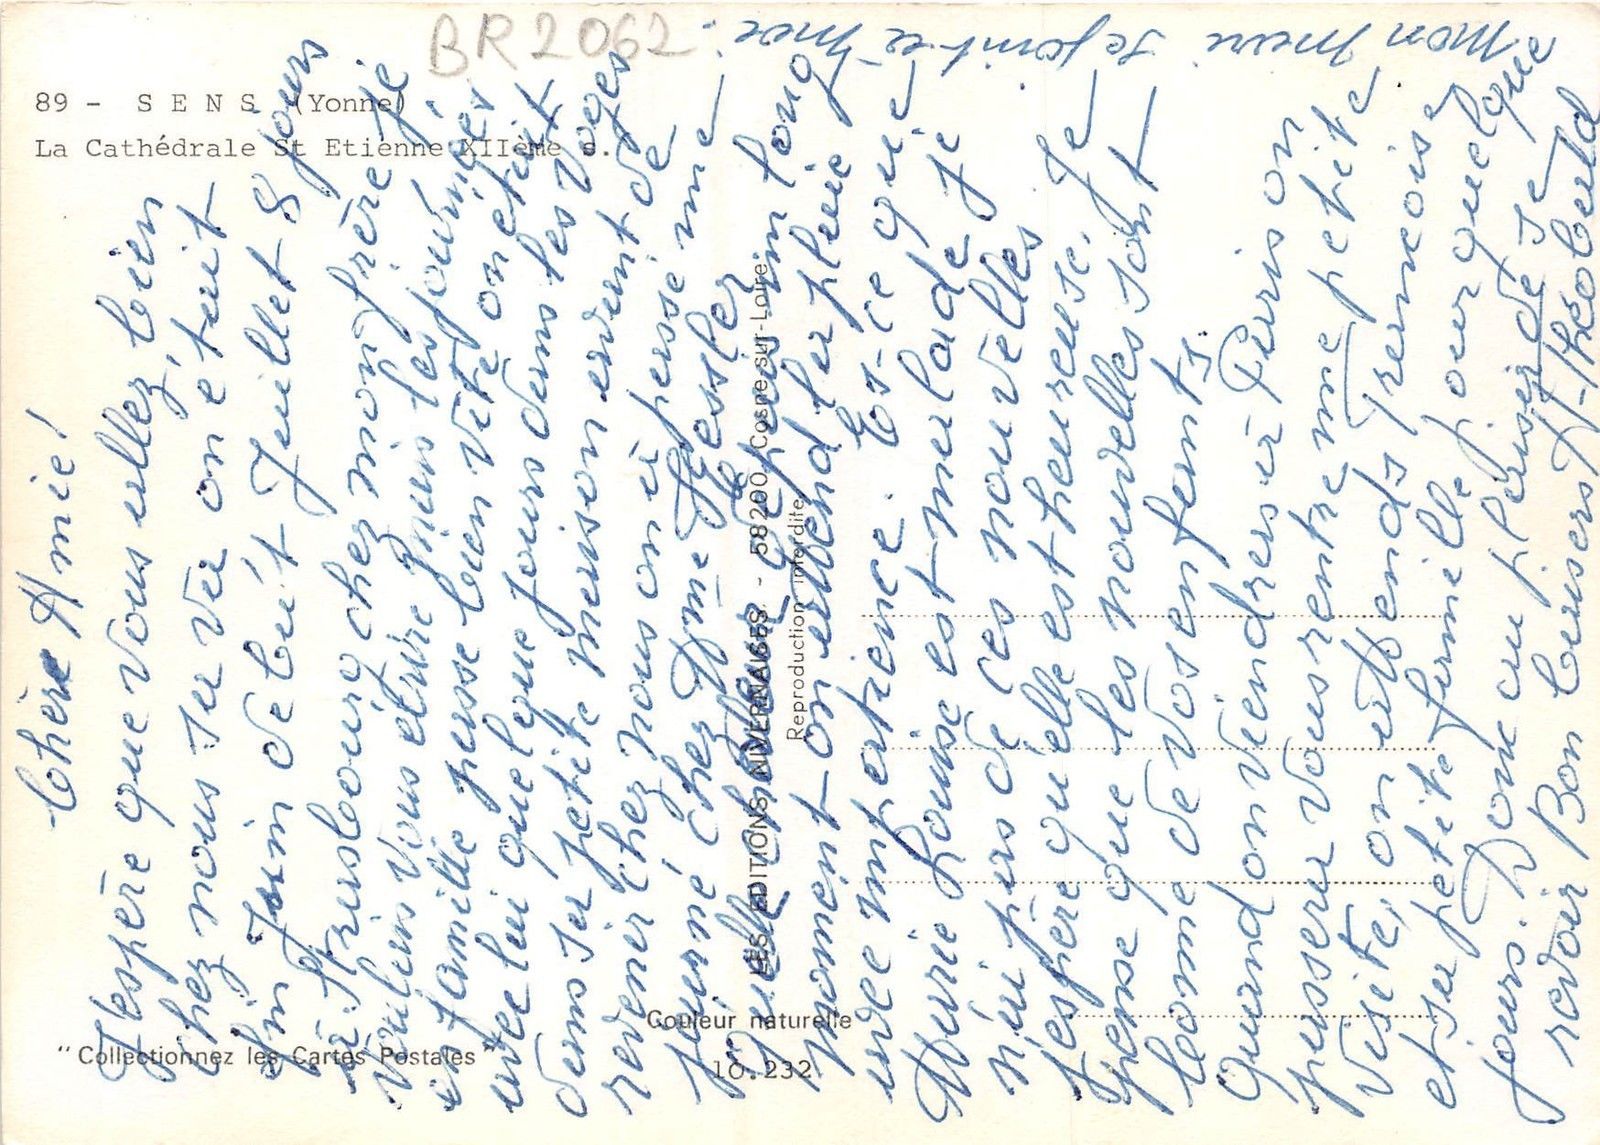 BR2062
89 - SENS (Yonne)
La Cathédrale St Etienne XIIème s.
Chère Amie!
J'espère que vous allez bien
chez nous sa va on était
fin Juin début Juillet 8 jours
à Strasbourg chez mon frère je
voulais vous écrire mais les journées
en famille passe bien vite on était
avec lui quelque jours dans les Voges
dans sa petite maison avant de
revenir chez nous on à passé une
journé chez Mme Kessler
quelle chaleur depuis un long
moment on attend la pluie
avec impatience. Es-ce que
Marie Louise est malade je
n'ai pas de ces nouvelles
j'espère qu'elle est heureuse. Je
pense que les nouvelles sont
bonne de vos enfants.
Quand on viendras à Paris on
passera vous rentre une petite
visite, on attends Francoise
et sa petite famille pour quelque
jours. Donc au plaisir de se
revoir Bon baisers J-Théobald
Mon mari se joint à moi.
LES EDITIONS NIVERNAISES - 58200 Cosne-sur-Loire
Reproduction interdite
Couleur naturelle
"Collectionnez les Cartes Postales"
10.232